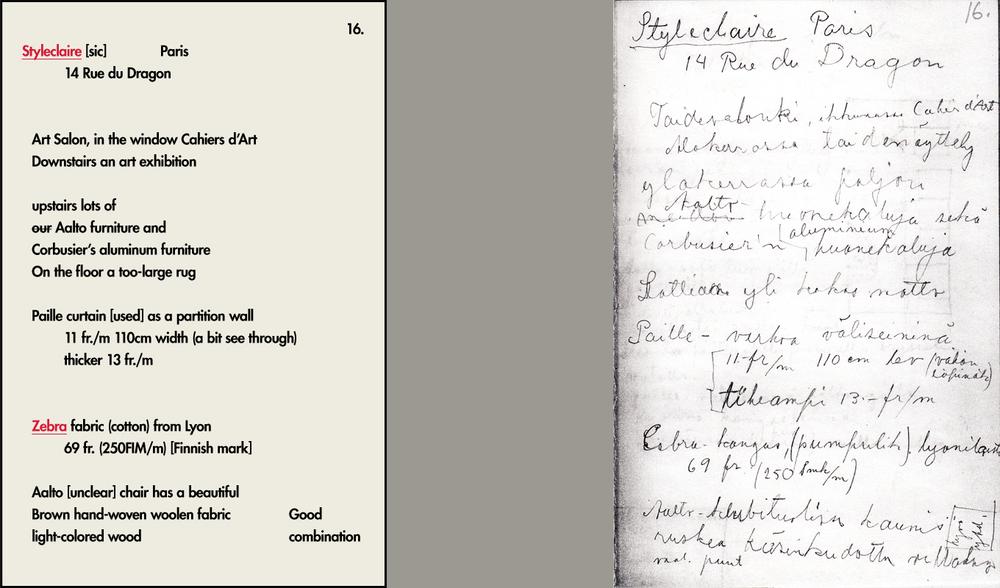 16.
Styleclaire [sic] Paris
14 Rue du Dragon
Art Salon, in the window Cahiers d'Art
Downstairs an art exhibition
upstairs lots of
our Aalto furniture and
Corbusier's aluminum furniture
On the floor a too-large rug
Paille curtain [used] as a partition wall
11 fr./m 110cm width (a bit see through)
thicker 13 fr./m
Zebra fabric (cotton) from Lyon
69 fr. (250FIM/m) [Finnish mark]
Aalto [unclear] chair has a beautiful
Brown hand-woven woolen fabric Good
light-colored wood combination
16.
Styleclaire Paris
14 Rue du Dragon
Taidesalonki, ikkunassa Cahier d'Art
Alakerrassa taidenäyttely
yläkerrassa paljon
Aalto-
huonekaluja sekä
Corbusier'n alumineum
huonekaluja
Lattian yli liekas matto
Paille- verhoa väliseininä
11.-fr/m 110 cm lev (vähän
läpinäk)
tiheämpi 13.- fr/m
Esbra- kangas, (pumpulik) lyonilaista
69 fr. (250 Smk/m)
Aalto- kaunis
ruskea käsinkudottu
vaal. puut